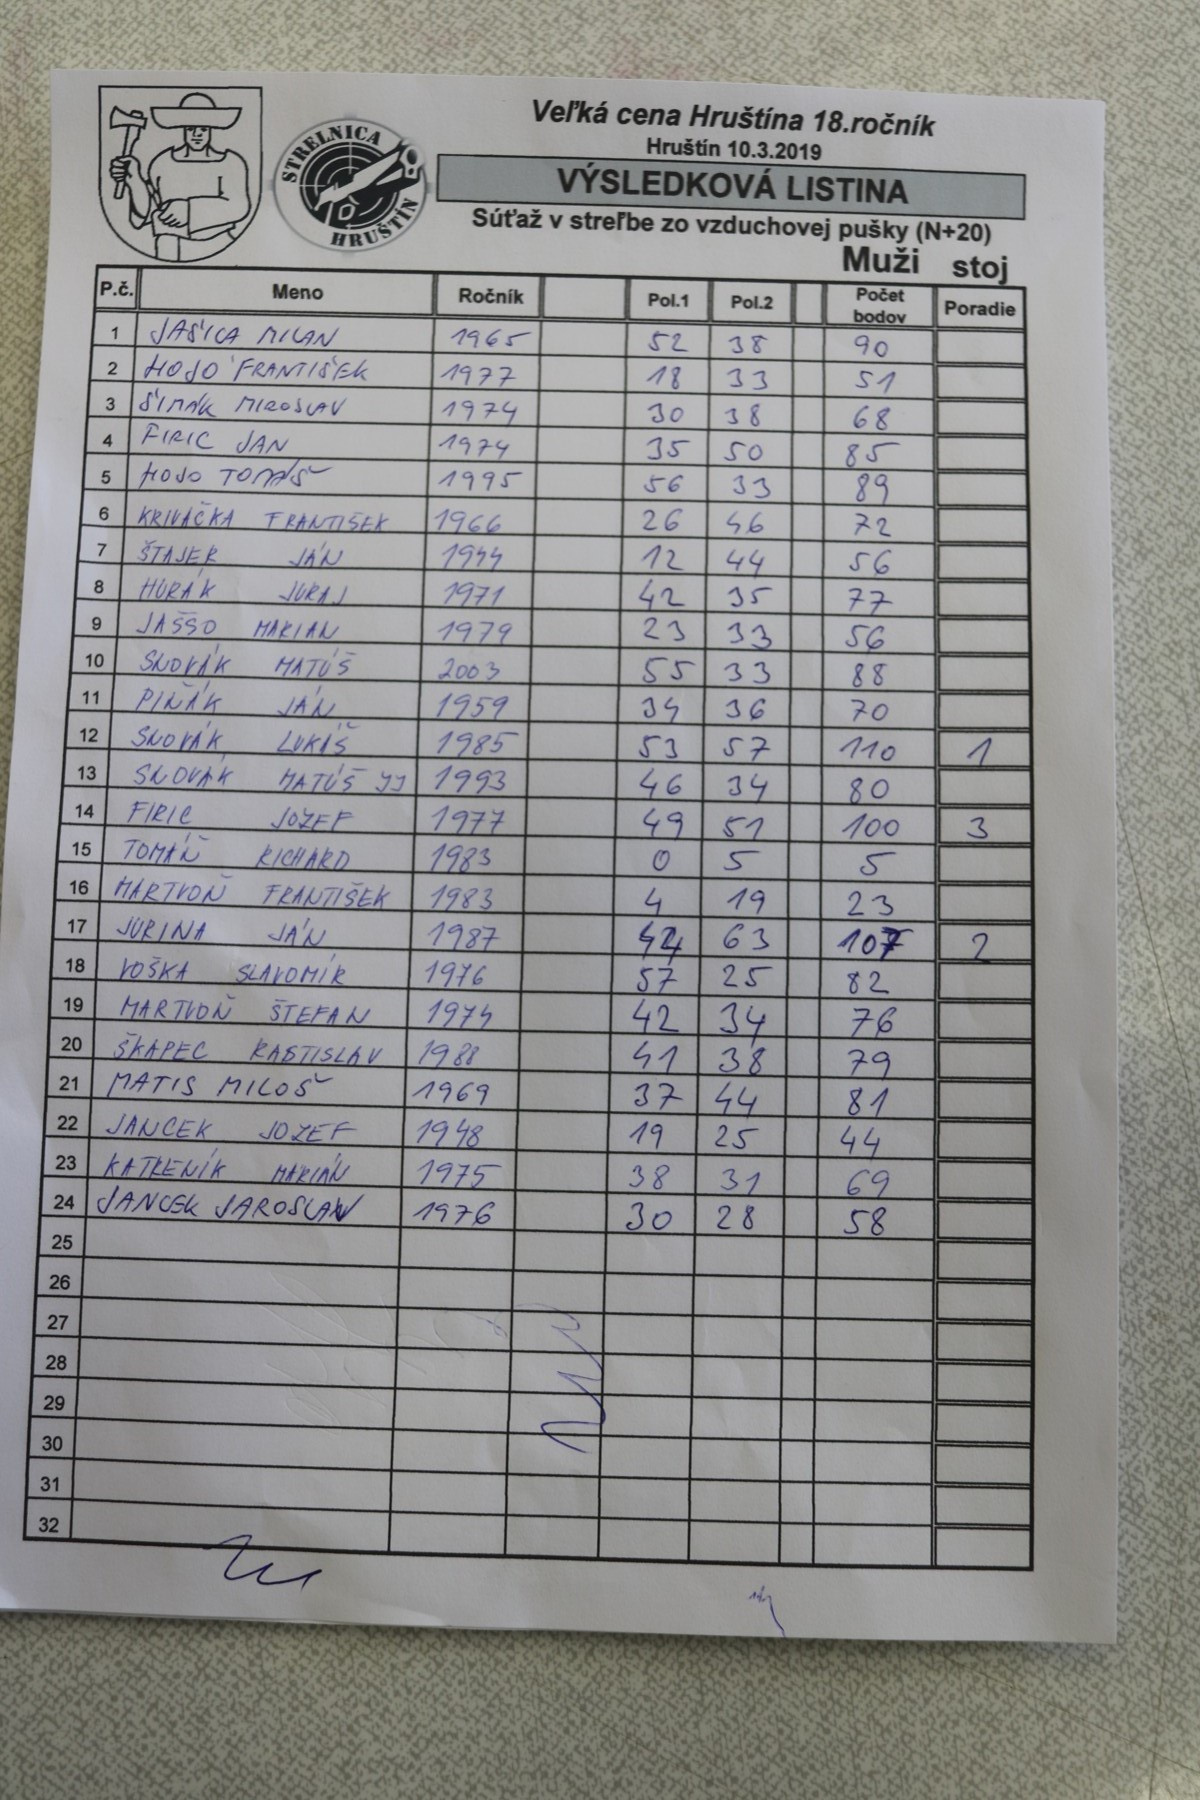 Veľká cena Hruštína 18.ročník
Hruštín 10.3.2019
STRELNICA HRUŠTÍN
VÝSLEDKOVÁ LISTINA
Súťaž v streľbe zo vzduchovej pušky (N+20)
Muži stoj
P.č. Meno Ročník Pol.1 Pol.2 Počet bodov Poradie
1 JAŠICA MILAN 1965 52 38 90
2 HOJO FRANTIŠEK 1977 18 33 51
3 ŠIMÁK MIROSLAV 1974 30 38 68
4 FIRIC JAN 1974 35 50 85
5 HOJO TOMÁŠ 1995 56 33 89
6 KRIVÁČKA FRANTIŠEK 1966 26 46 72
7 ŠTAJER JÁN 1944 12 44 56
8 HURÁK JURAJ 1971 42 35 77
9 JAŠŠO MARIAN 1979 23 33 56
10 SNOVÁK MATÚŠ 2003 55 33 88
11 PIŇÁK JÁN 1959 34 36 70
12 SNOVÁK LUKÁŠ 1985 53 57 110 1
13 SNOVÁK MATÚŠ JJ 1993 46 34 80
14 FIRIC JOZEF 1977 49 51 100 3
15 TOMÁŇ RICHARD 1983 0 5 5
16 MARTVOŇ FRANTIŠEK 1983 4 19 23
17 JURINA JÁN 1987 44 63 107 2
18 VOŠKA SLAVOMÍR 1976 57 25 82
19 MARTVOŇ ŠTEFAN 1974 42 34 76
20 ŠKAPEC RASTISLAV 1988 41 38 79
21 MATIS MILOŠ 1969 37 44 81
22 JANCEK JOZEF 1948 19 25 44
23 KATRENÍK MARIÁN 1975 38 31 69
24 JANCEK JAROSLAV 1976 30 28 58
25
26
27
28
29
30
31
32